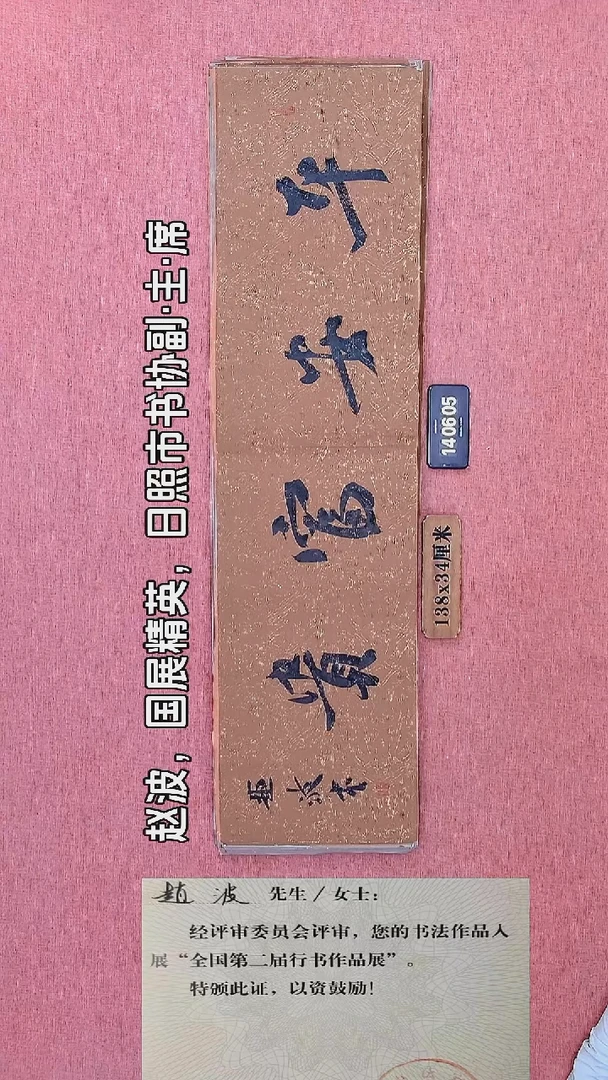 赵波，国展精英，日照市书协副·主·席
平安富貴
趙波书
140605
138x34厘米
趙波 先生／女士：
经评审委员会评审，您的书法作品入
展“全国第二届行书作品展”。
特颁此证，以资鼓励！